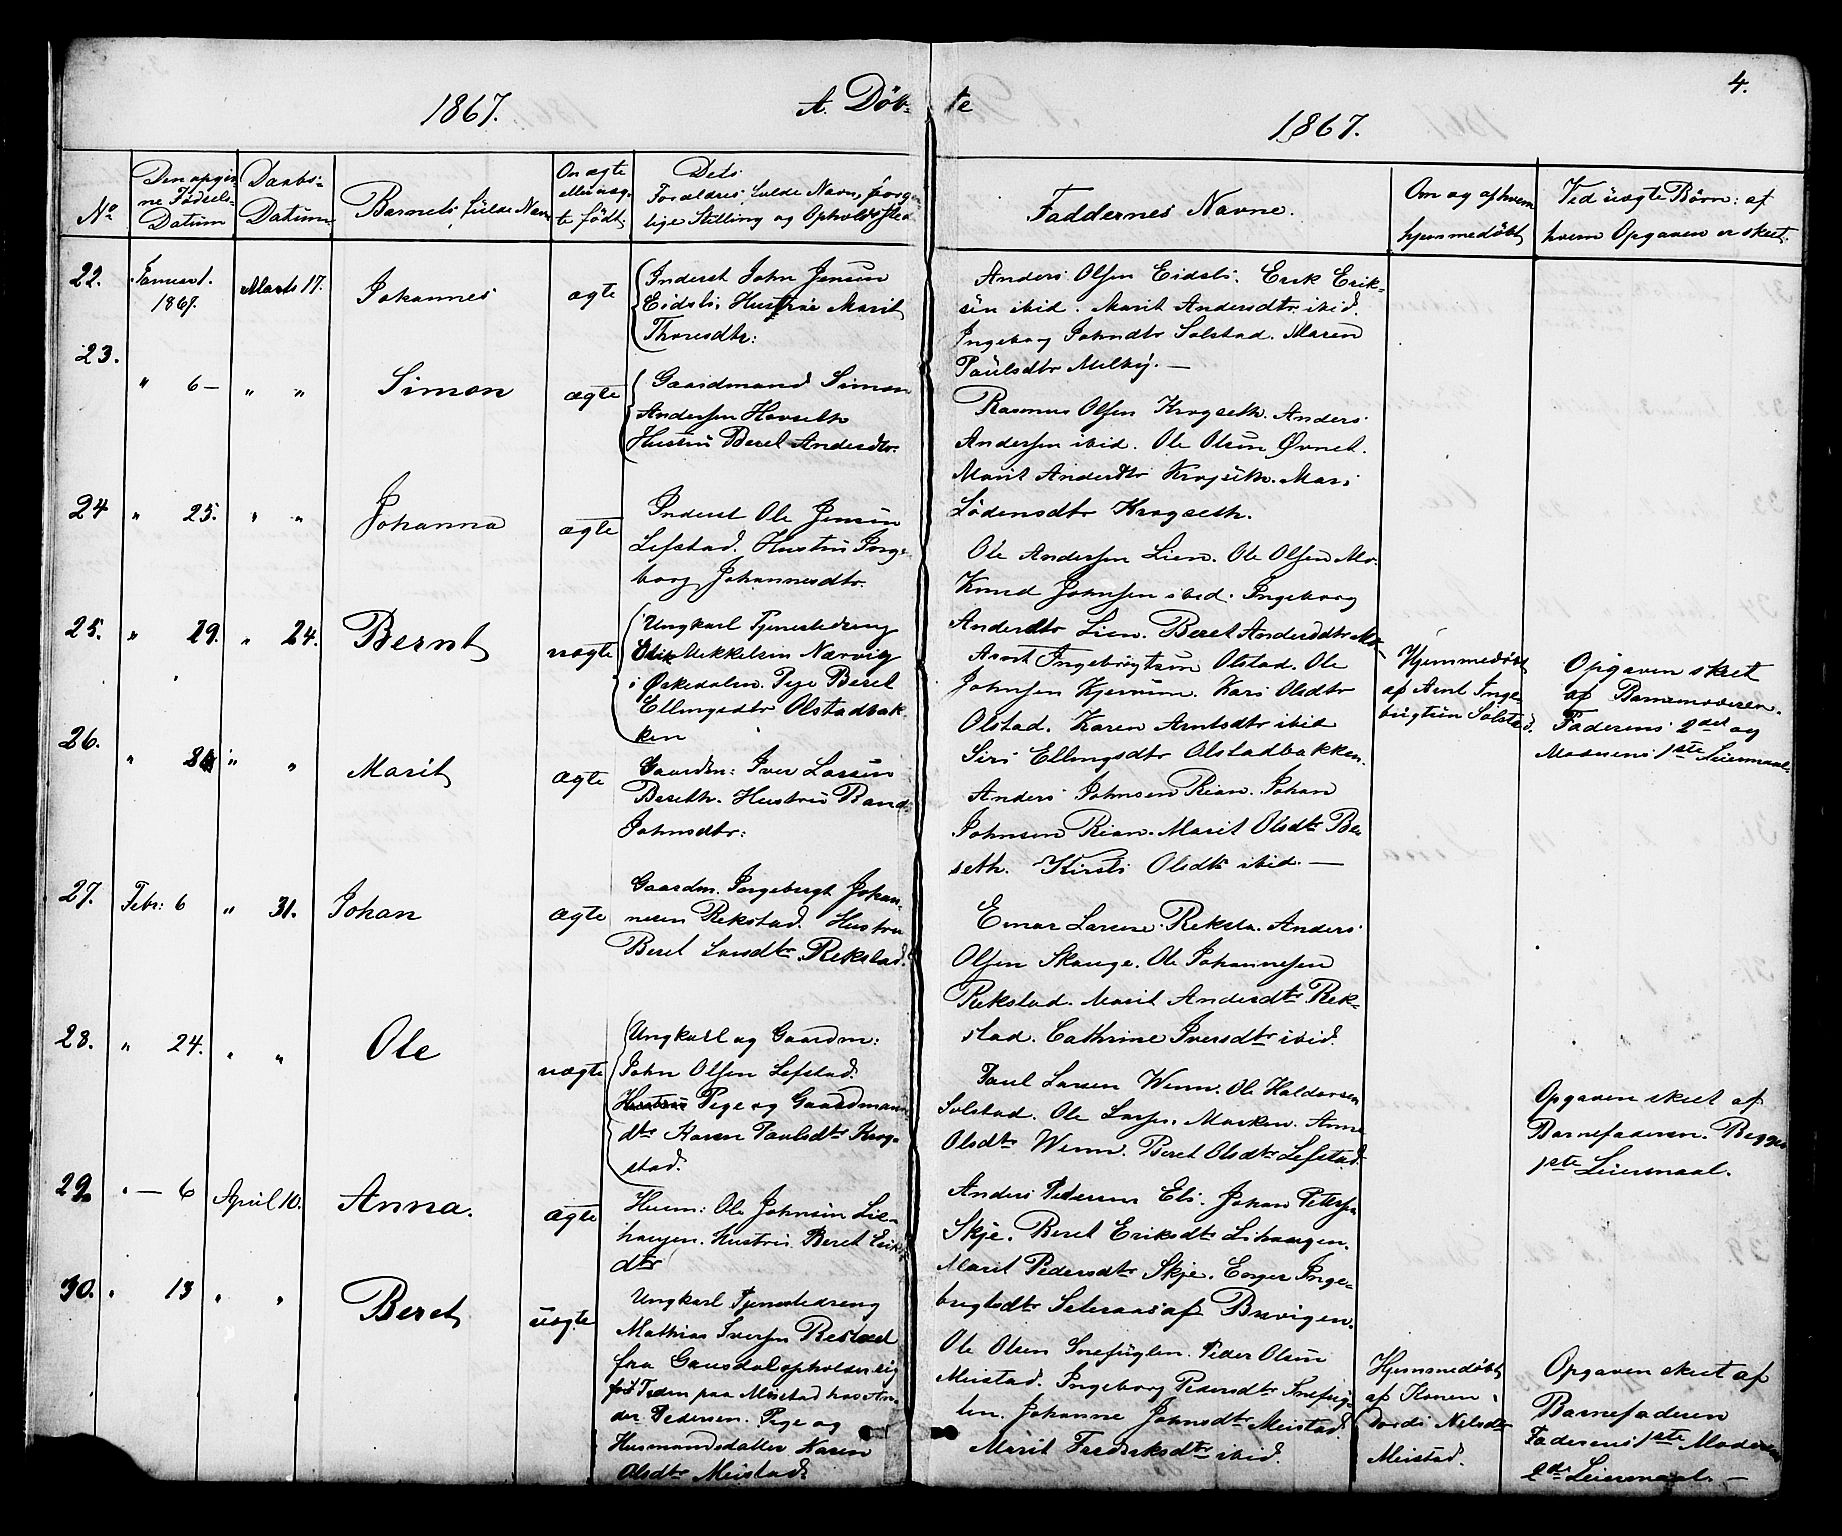 4.
1867. A. Døb- te 1867.
No
Den opgiv-
ne Fødsels-
Datum
Daabs-
Datum
Barnets fulde Navn
Om ægte
eller uæg-
te født.
Dets
Forældres fulde Navn, borger-
lige Stilling og Opholdssted
Faddernes Navne.
Om og af hvem
hjemmedøbt
Ved uægte Børn: af
hvem Opgaven er skeet.
22. Januar 1. 1867. Marts 17. Johannes ægte
Inderst John Jensen
Eidsli, Hustrue Marit
Thoresdtr:
Anders Olsen Eidsli. Erik Erik-
sen ibid. Marit Andersdtr ibid.
Ingeborg Johndtr Solstad. Maren
Paulsdtr Melby. —
23. " 6 — " " Simon ægte
Gaardmand Simon
Andersen Hovseth
Hustru Beret Andersdtr.
Rasmus Olsen Krogseth. Anders
Andersen ibid. Ole Olsen Øvnet.
Marit Andersdtr Krogseth. Mari
Lødensdtr Krogseth.
24 " 25. " " Johanna ægte
Inderst Ole Jensen
Lefstad. Hustru Inge-
borg Johannesdtr.
Ole Andersen Lien. Ole Olsen Mo.
Knud Johnsen ibid. Ingeborg
Andersdtr Lien. Beret Andersdtr Mo.
25. " 29. " 24. Bernt uægte
Ungkarl Tjenestedreng
Erik Mekkelsen Nærvig
i Ørkedalen. Pige Beret
Ellingsdtr Olstadbak-
ken
Arnt Ingebrigtsen Olstad. Ole
Johnsen Kjerrum. Kari Olsdtr
Olstad. Karen Arntsdtr ibid
Siri Ellingsdtr Olstadbakken.
Hjemmedøbt
af Arnt Inge-
brigtsen Solstad.
Opgaven skeet
af Barnemoderen.
Faderens 2det og
Moderens 1ste Leiermaal.
26. " " " Marit ægte
Gaardm: Iver Larsen
Berseth. Hustru Rand
Johnsdtr:
Anders Johnsen Rian. Johan
Johnsen Rian. Marit Olsdtr Ber
seth. Kirsti Olsdtr ibid. —
27. Febr: 6 " 31. Johan ægte
Gaardm. Ingebrigt Johan-
nesen Rekstad. Hustru
Beret Larsdtr Rekstad.
Einar Larsen Reksta. Anders
Olsen Skauge. Ole Johannesen
Rekstad. Marit Andersdtr Rek-
stad. Cathrine Iversdtr ibid.
28. " 24. " " Ole uægte
Ungkarl og Gaardm:
John Olsen Lefstad.
Hustrue Pige og Gaardmann
dtr Karen Paulsdtr Krog-
stad.
Paul Larsen Wenn. Ole Haldorsen
Solstad. Ole Larsen Morken. Anne
Olsdtr Wenn. Beret Olsdtr Lefstad.
Opgaven skeet af
Barnefaderen. Begges
1ste Leiermaal.
29. " — 6 April 10. Anna. ægte
Husm: Ole Johnsen Lie-
haugen. Hustru Beret Eriks
dtr
Anders Pedersen Eli. Johan Petters.
Skje. Beret Eriksdtr Lihaugen.
Marit Pedersdtr Skje. Enger Inge-
brigtsdtr Seteraas af Brøvigen.
30. " 13 " " Beret uægte
Ungkarl Tjenestedreng
Mathias Iversen Restad
fra Gausdal opholder sig
for Tiden paa Meistad hos An-
der Pedersen. Pige og
Husmandsdatter Karen
Olsdtr Meistad.
Ole Olsen Snefuglen. Peder Olsen
Meistad. Ingeborg Pedersdtr Snefug-
len. Johanne Johnsdtr Meistad.
Marit Fredriksdtr ibid.
Hjemmedøbt
af Konen
Dordi Nelsdtr
Meistad.
Opgaven skeet af
Barnefaderen
Faderens 1ste Moderens
2det Leiermaal. —